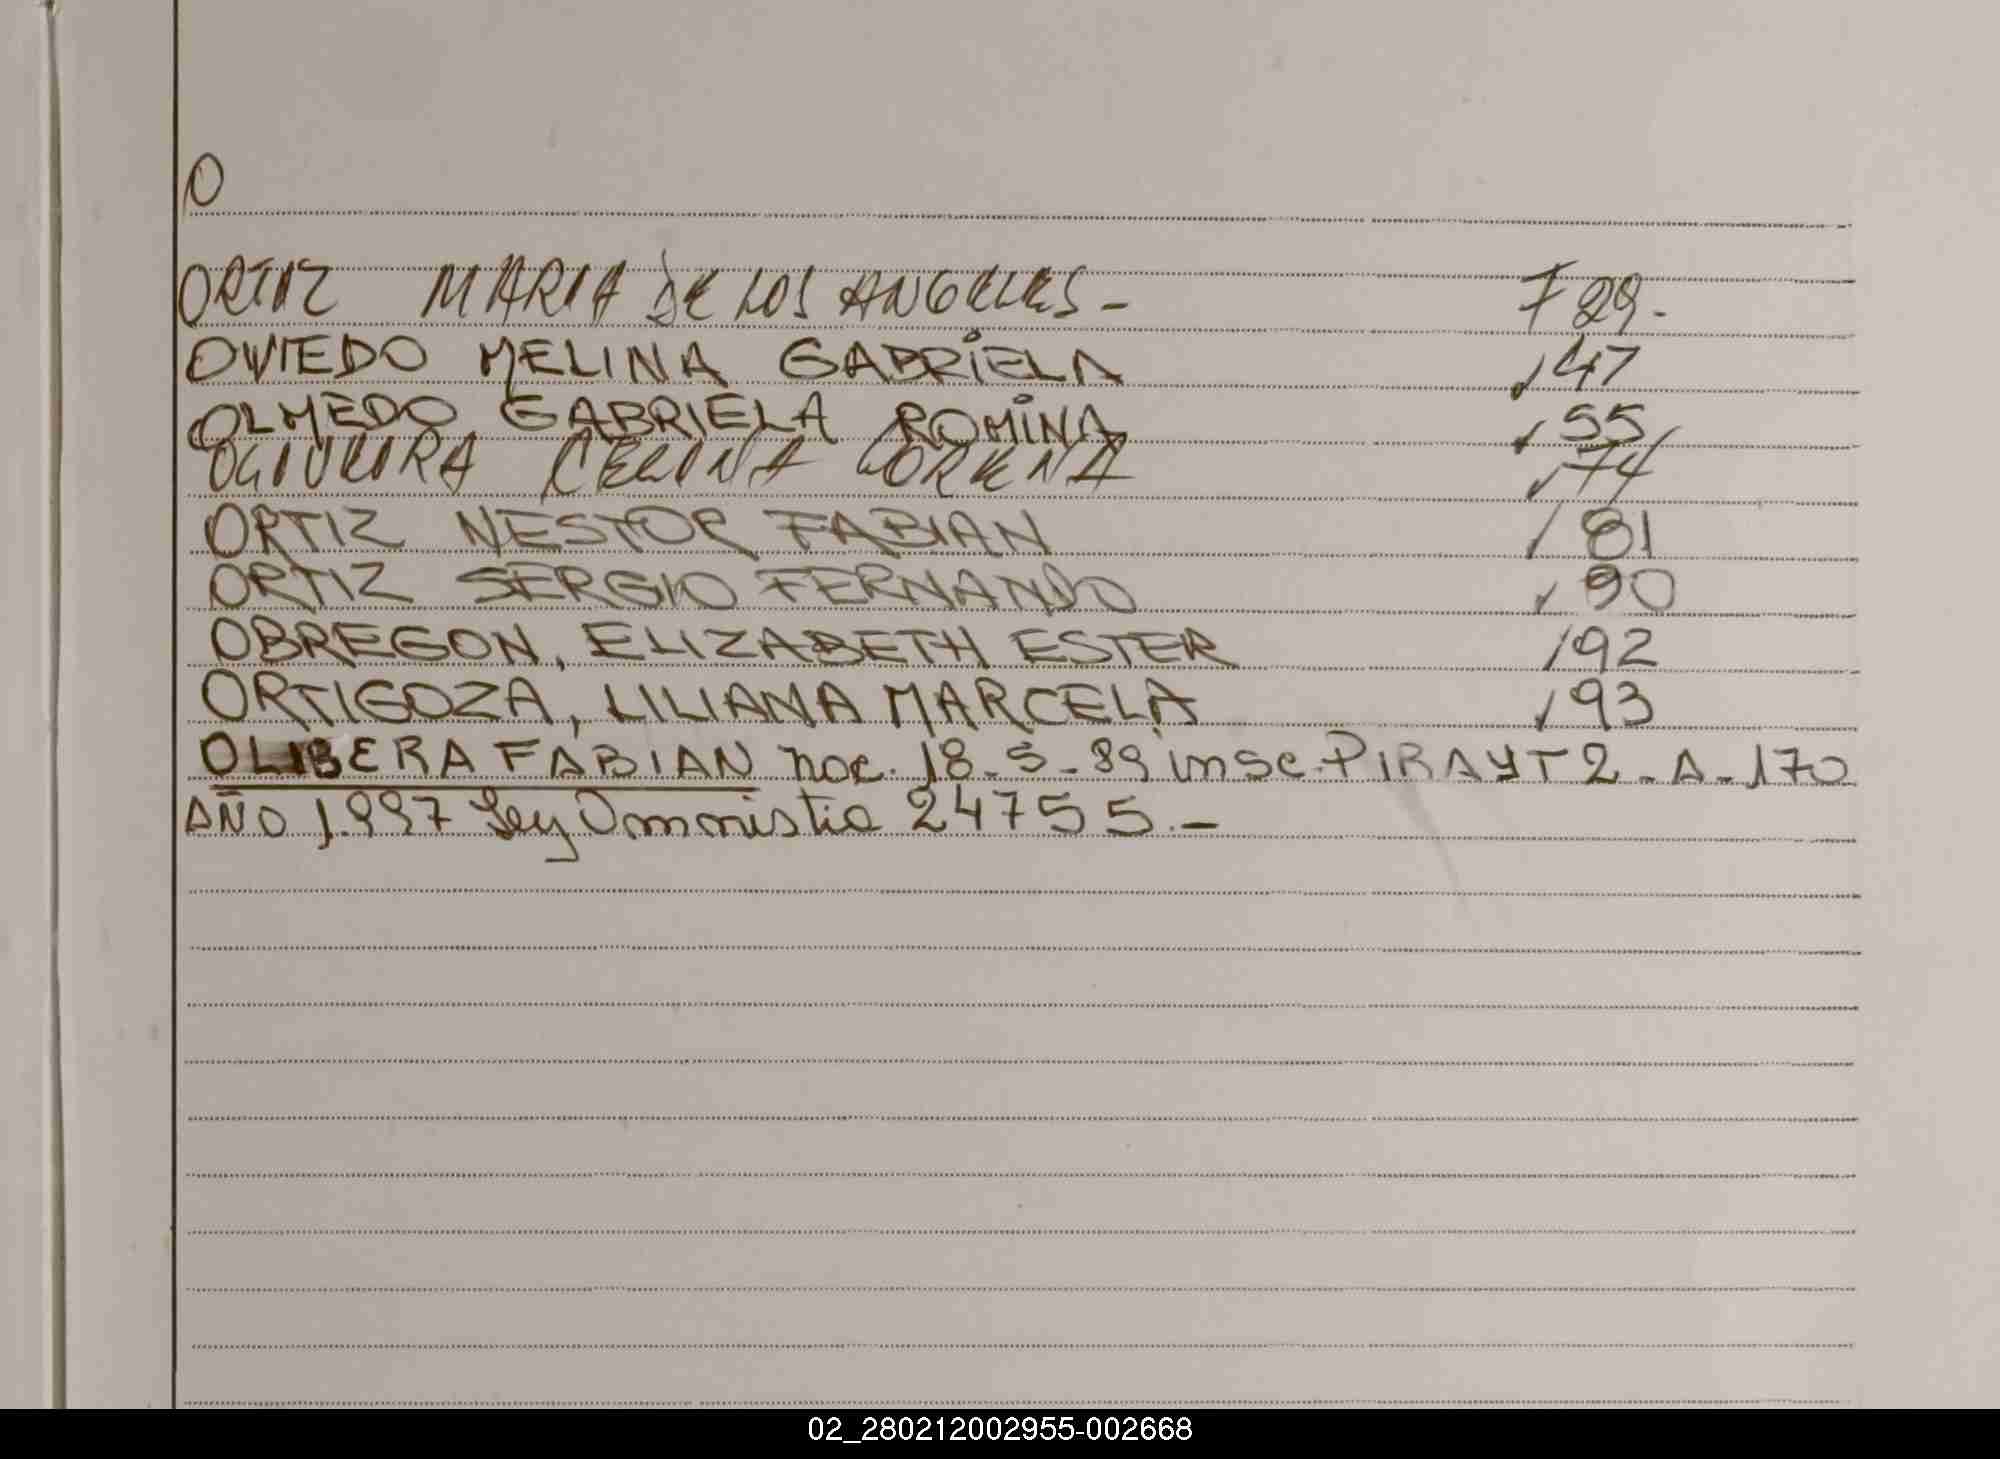 O
ORTIZ MARIA DE LOS ANGELES - F 29.
OVIEDO MELINA GABRIELA ✓ 47
OLMEDO GABRIELA ROMINA ✓ 55
OLIVEIRA CELINA LORENA ✓ 74
ORTIZ NESTOR FABIAN / 81
ORTIZ SERGIO FERNANDO ✓ 90
OBREGON, ELIZABETH ESTER / 92
ORTIGOZA, LILIANA MARCELA ✓ 93
OLIBERA FABIAN nac. 18-5-89 insc. PIRAY T 2 - A - 170
AÑO 1.997 Ley Ommistia 24755.-
02_280212002955-002668